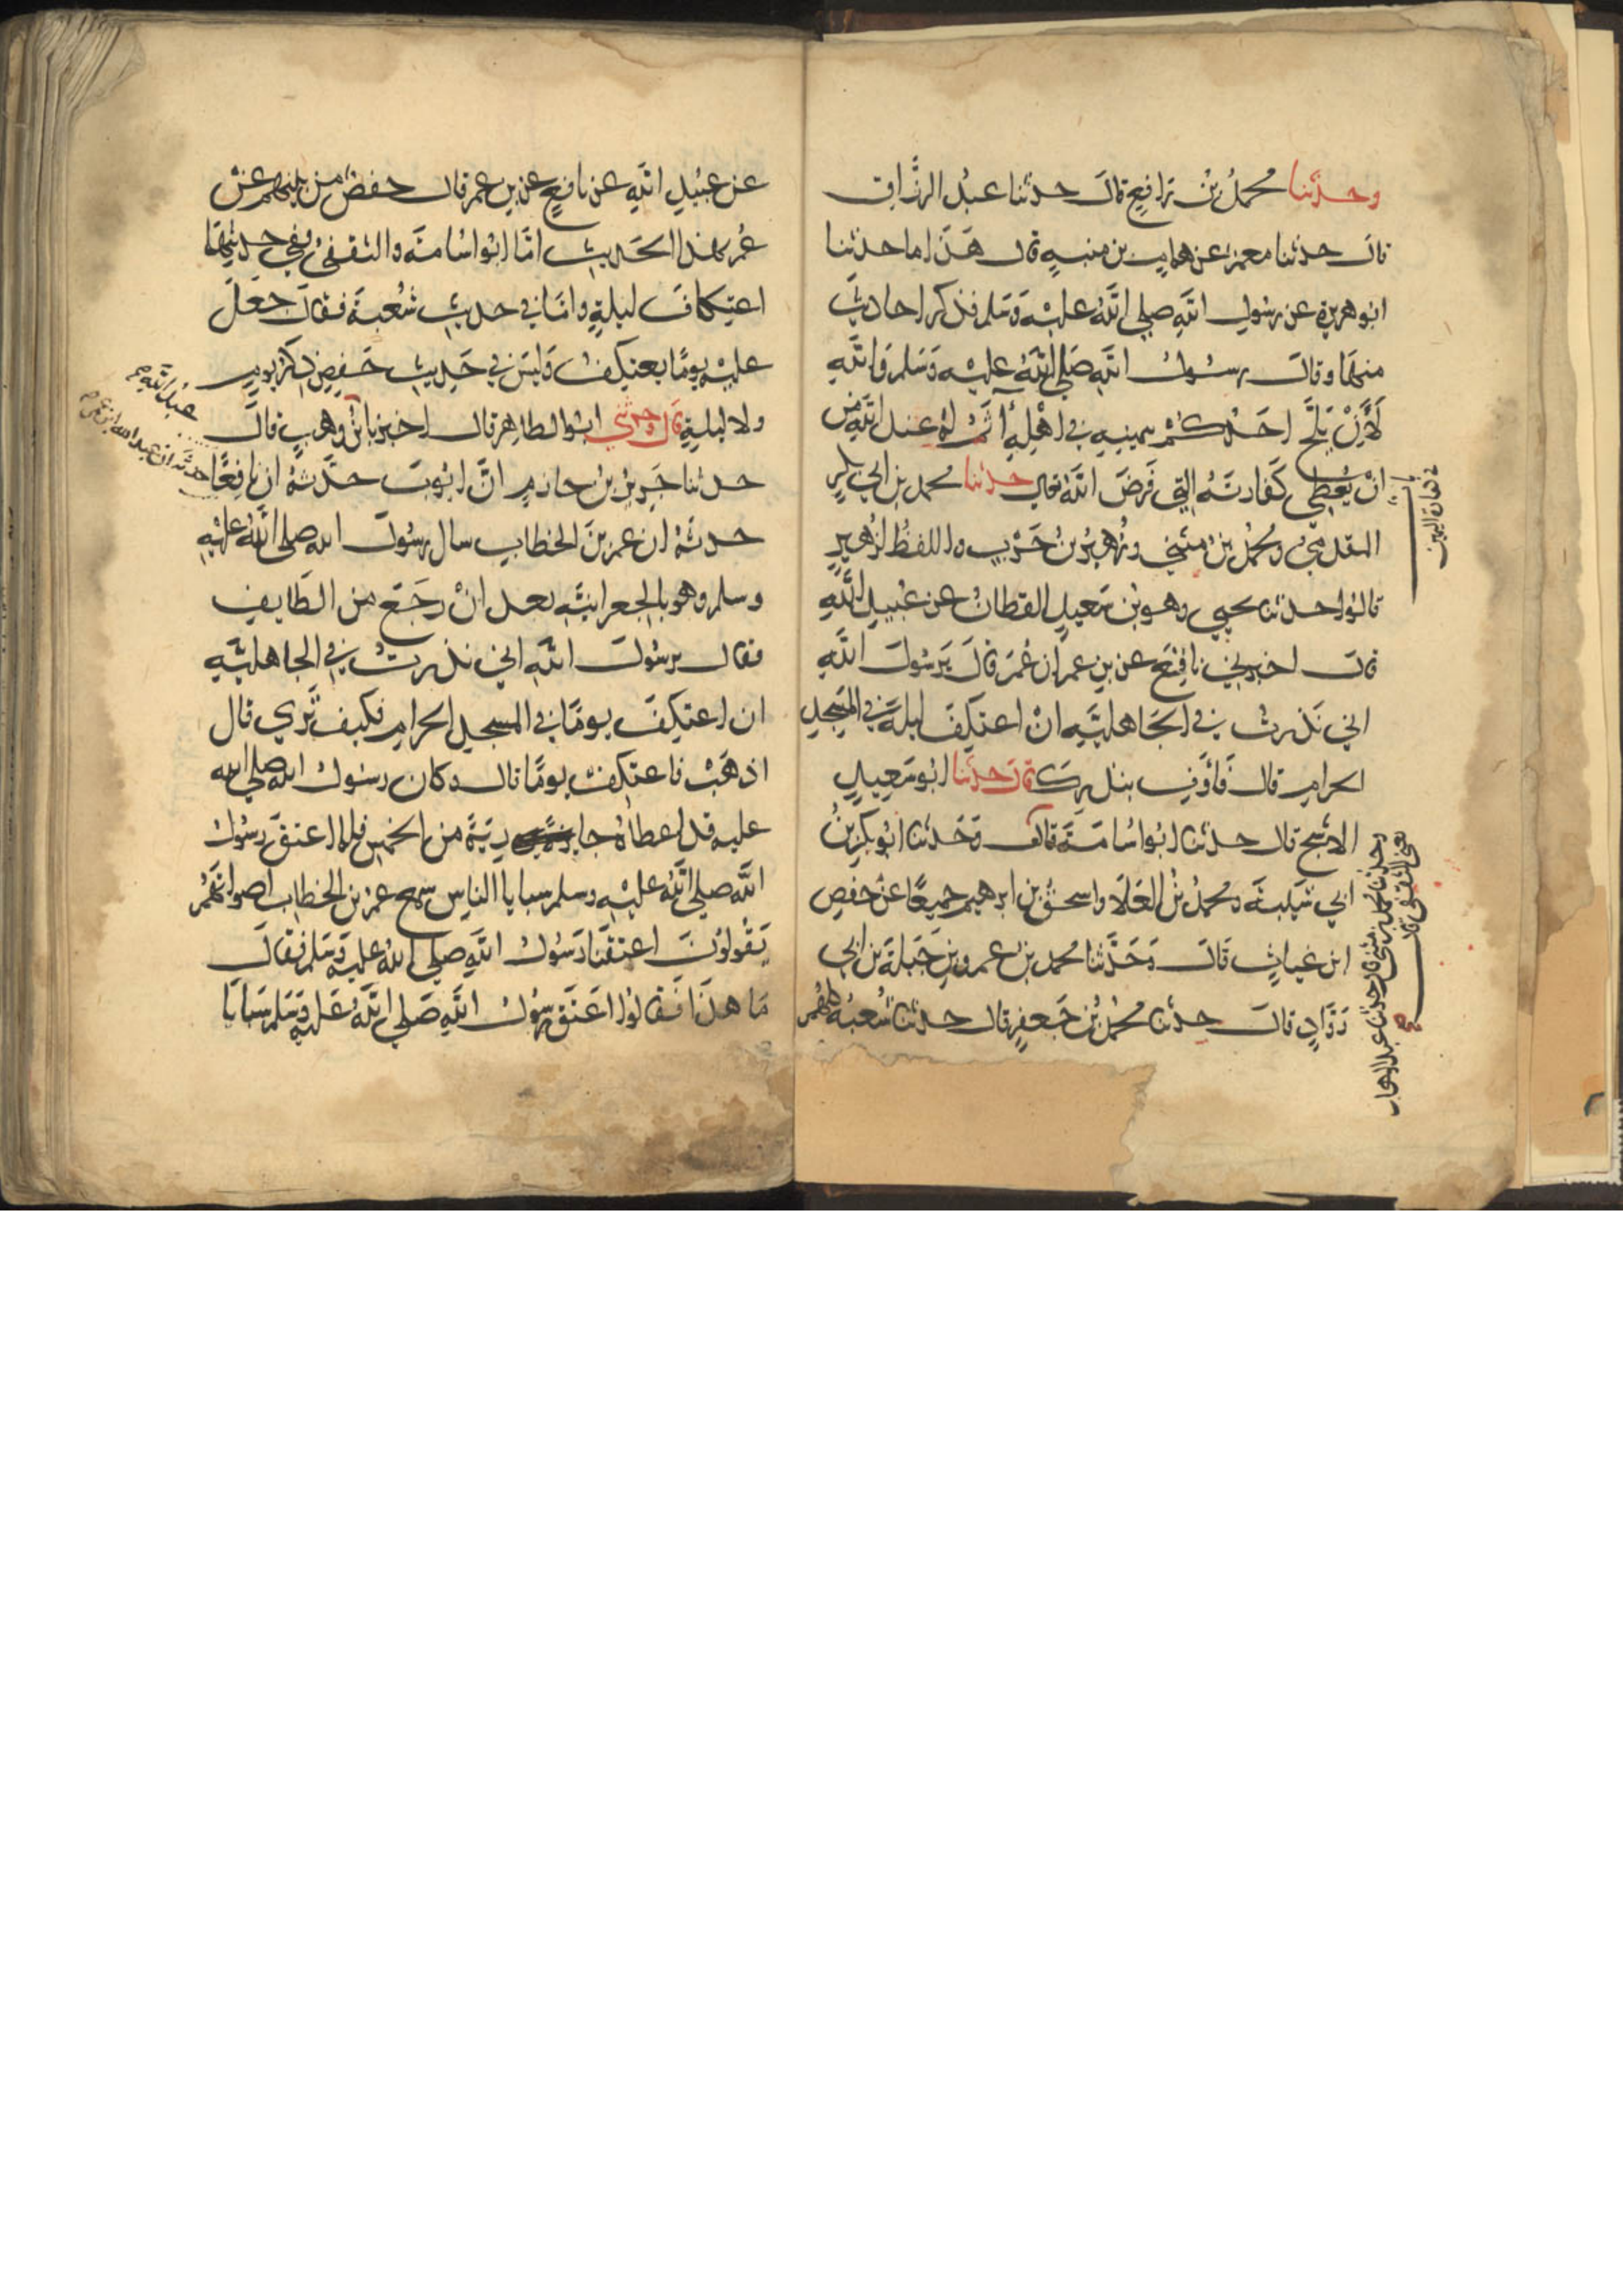 وحدثنا محمد بن رافع قال حدثنا عبد الرزاق
قال حدثنا معمر عن همام بن منبه قال هذا ما حدثنا
ابو هريرة عن رسول الله صلى الله عليه وسلم فذكر احاديث
منها وقال رسول الله صلى الله عليه وسلم والله
لأن يلج احدكم بيمينه في اهله آثم له عند الله من
ان يعطي كفارته التي فرض الله تعالى حدثنا محمد بن ابي بكر
المقدمي ومحمد بن مثنى وزهير بن حرب واللفظ لزهير
قالوا حدثنا يحيى وهو بن سعيد القطان عن عبيد الله
قال اخبرني نافع عن بن عمر ان عمر قال يرسول الله
اني نذرت في الجاهلية ان اعتكف ليلة في المسجد
الحرام قال فأوف بنذرك قال حدثنا ابو سعيد
الاشج قال حدثنا ابو اسامة قال وحدثنا ابو بكر بن
ابي شيبة ومحمد بن العلا واسحق بن ابرهيم جميعا عن حفص
ابن غياث قال وحدثنا محمد بن عمرو بن جبلة بن ابي
رواد قال حدثنا محمد بن جعفر قال حدثنا شعبة كلهم
باب
في كفارة اليمين
وحدثنا محمد بن مثنى قال حدثنا عبد الوهاب
يعني الثقفي قال
عن عبيد الله عن نافع عن بن عمر قال حفص من بينهم عن
عمر بهذا الحديث اما ابو اسامة والثقفي ففي حديثهما
اعتكاف ليلة واما في حديث شعبة فقال جعل
عليه يوما يعتكف وليس في حديث حفص ذكر يوم
ولا ليلة قال وحدثني ابو الطاهر قال اخبرنا بن وهب قال
حدثنا جرير بن حازم ان ايوب حدثه ان نافعا
حدثه ان عمر بن الخطاب سال رسول الله صلى الله عليه
وسلم وهو بالجعرانية بعد ان رجع من الطايف
فقال يرسول الله اني نذرت في الجاهلية
ان اعتكف يوما في المسجد الحرام فكيف ترى قال
اذهب فاعتكف يوما قال وكان رسول الله صلى الله
عليه قد اعطاه جارية من الخمس فلما اعتق رسول
الله صلى الله عليه وسلم سبايا الناس سمع عمر بن الخطاب اصواتهم
يقولون اعتقنا رسول الله صلى الله عليه وسلم فقال
ما هذا فقالوا اعتق رسول الله صلى الله عليه وسلم سبايا
عبد الله
حدثه ان عبد الله ابن عمر